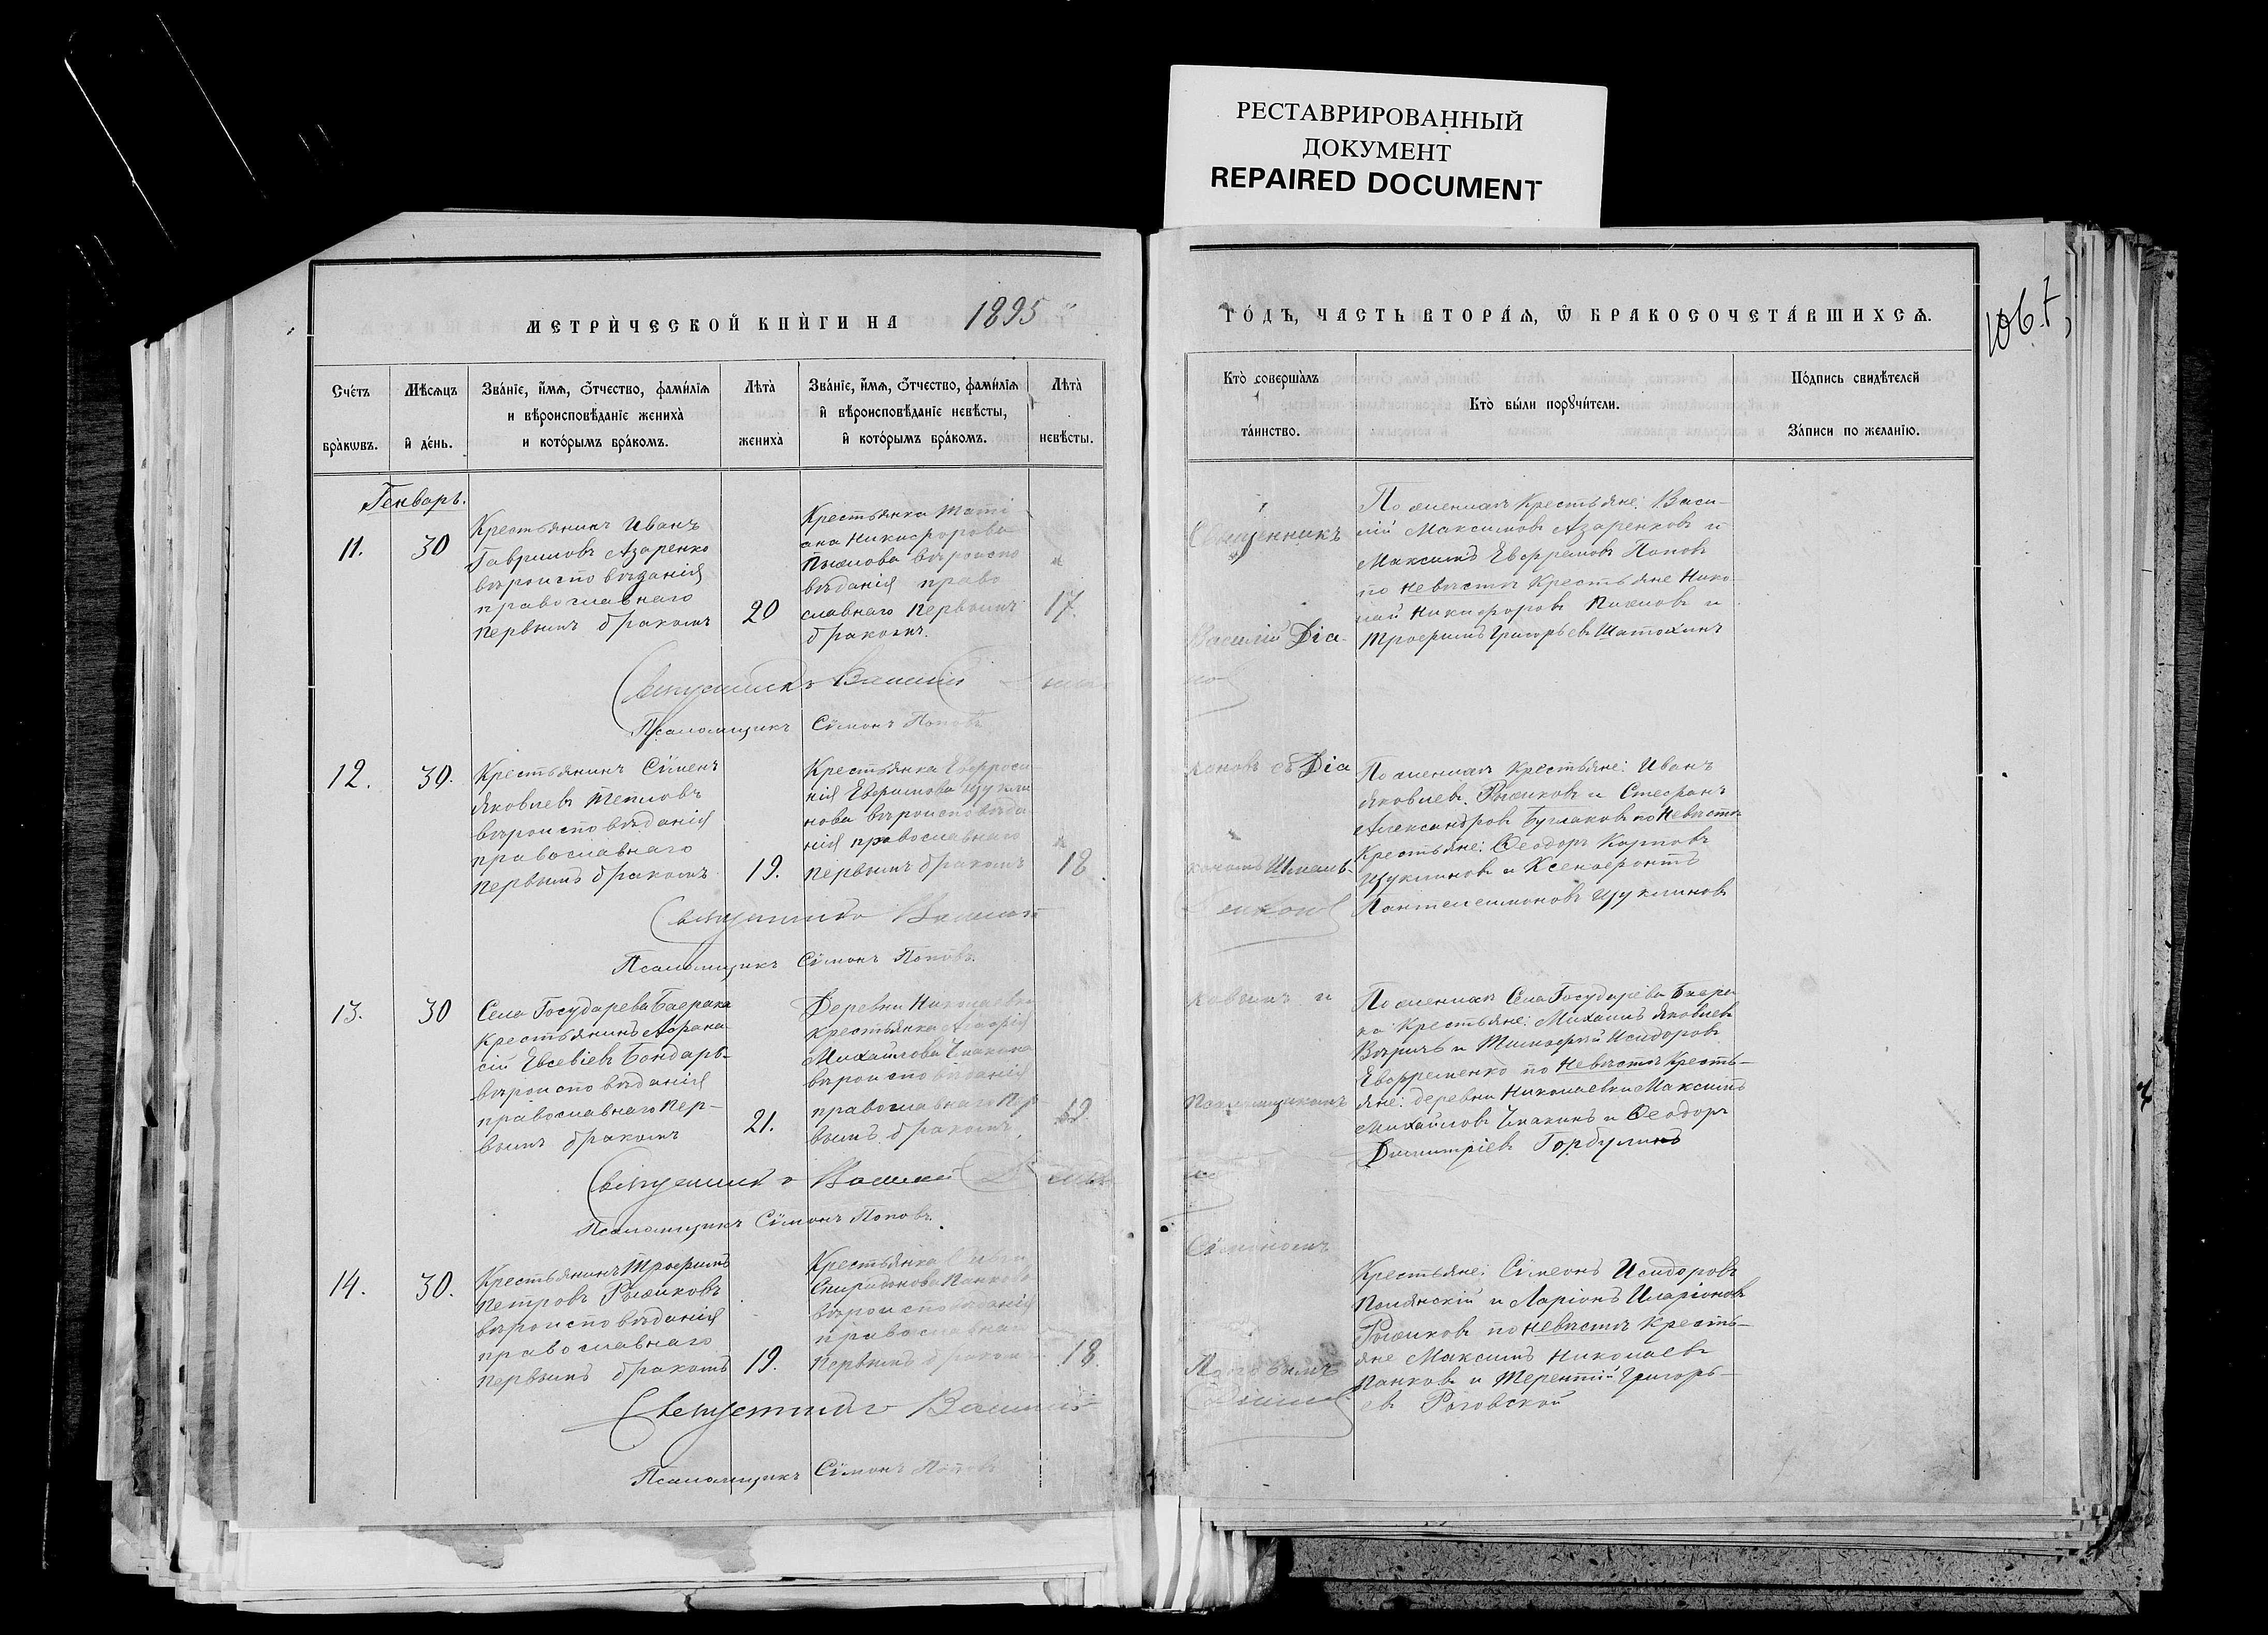 РЕСТАВРИРОВАННЫЙ
ДОКУМЕНТ
REPAIRED DOCUMENT
МЕТРИ́ЧЕСКОЙ КНИ́ГИ НА 1895
ГО́ДЪ, ЧАСТЬ ВТОРА́Я, Ѡ БРАКОСОЧЕТА́ВШИХСЯ.
106.
Сче́тъ
бра́кѡвъ.
Мѣ́сяцъ
и҆ де́нь.
Зва́нїе, и҆́мя, ѻ҆́тчество, фами́лїя
и вѣроисповѣ́данїе жениха̀
и кото́рымъ бра́комъ.
Лѣта̀
жениха̀
Зва́нїе, и҆́мя, ѻ҆́тчество, фами́лїя
и҆ вѣроисповѣ́данїе невѣ́сты,
и҆ кото́рымъ бра́комъ.
Лѣта̀
невѣ́сты.
Кто̀ соверша́лъ
та́инство.
Кто̀ бы́ли порꙋчи́тели.
По́дпись свидѣ́телей
За́писи по жела́нїю.
Генварь.
11.
30
Крестьянинъ Иванъ
Гавриловъ Азаренко
вѣроисповѣданія
православнаго
первымъ бракомъ
20
Крестьянка Тати
ана Никифорова
вѣроиспо
вѣданія право
славнаго первымъ
бракомъ.
17.
Священникъ
Василій Діа-
По женихѣ Крестьяне: Васи-
лій Максимовъ Азаренковъ и
Максимъ Ефремовъ Поповъ
по невѣстѣ Крестьяне Нико-
лай Никифоровъ и
Трофимъ Григорьевъ Шатохинъ
Священникъ Василій
Псаломщикъ Симонъ Поповъ
12.
30.
Крестьянинъ Сименъ
Яковлевъ Тепловъ
вѣроисповѣданія
православнаго
первымъ бракомъ
19.
Крестьянка Евфроси-
нія Ефимова Щукли
нова вѣроисповѣда
нія православнаго
первымъ бракомъ
18.
коновъ съ Діа
кономъ
По женихѣ Крестьяне: Иванъ
Яковлевъ Рыжиковъ и Стефанъ
Александровъ Буглаковъ по невѣстѣ
Крестьяне: Ѳеодоръ Карповъ
Щуклиновъ и Ксенофонтъ
Пантелеимоновъ Щуклиновъ
Священникъ Василій
Псаломщикъ Симонъ Поповъ.
13.
30
Села Государева Баерака
Крестьянинъ Афана-
сій Евсевіевъ Бондарь
вѣроисповѣданія
православнаго пер-
вымъ бракомъ
21.
Деревни Николаевки
крестьянка Агафія
Михайлова Чмакина
вѣроисповѣданія
православнаго пер
вымъ бракомъ.
19
ковымъ и
Псаломщикомъ
По женихѣ Села Государева Баера-
ка Крестьяне: Михаилъ Яковлевъ
и Тимофей Исидоровъ
Ефременко по невѣстѣ Кресть-
яне: деревни Николаевки Максимъ
Михайловъ Чмакинъ и Ѳеодоръ
Димитріевъ Горбулинъ
Священникъ Василій
Псаломщикъ Симонъ Поповъ.
14.
30.
Крестьянинъ Трофимъ
Петровъ Рыжиковъ
вѣроисповѣданія
православнаго
первымъ бракомъ
19.
Крестьянка
Спиридонова Панкова
вѣроисповѣданія
православнаго
первымъ бракомъ
18.
Симономъ
Поповымъ
Крестьяне: Симеонъ Исидоровъ
Полянскій и Ларіонъ Иларіоновъ
Рыжиковъ по невѣстѣ Кресть-
яне Максимъ Николаевъ
Панковъ и Терентій Григорь-
евъ Роговской
Священникъ Василій
Псаломщикъ Симонъ Поповъ